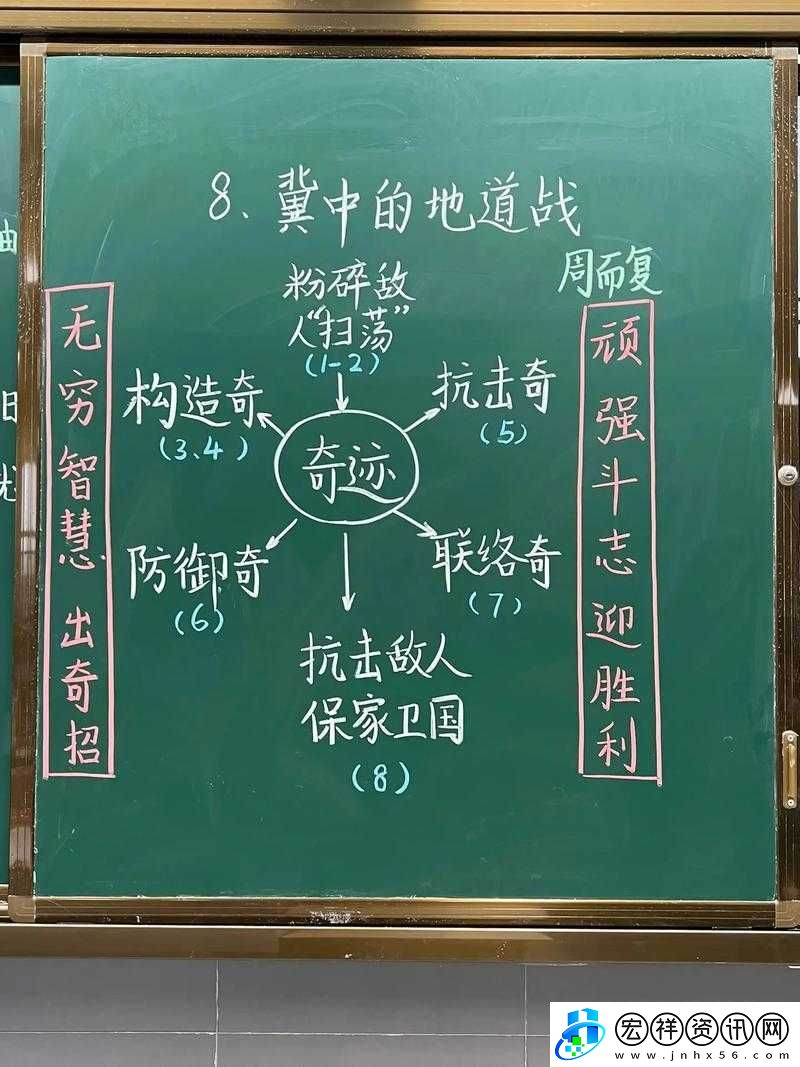 8、冀中的地道战
周而复
粉碎敌
人“扫荡”
(1-2)
构造奇
(3、4)
抗击奇
(5)
奇迹
防御奇
(6)
联络奇
(7)
抗击敌人
保家卫国
(8)
无穷智慧出奇招
顽强斗志迎胜利
由
日
宏祥资讯网
www.jnhx56.com